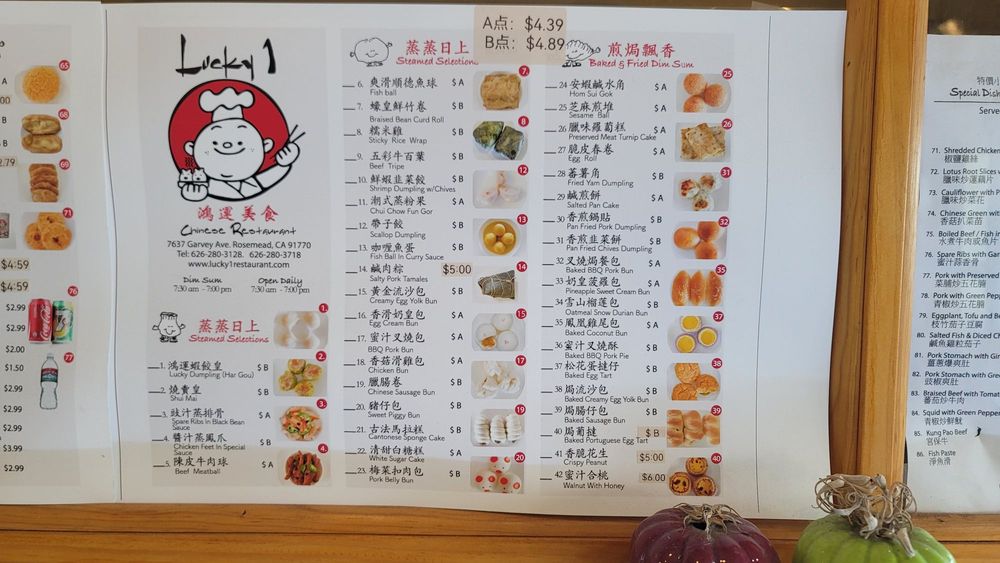 65
A
00
68
B
B
2.79
69
71
$4:59
$4:59
76
$2.99
$2.99
$2.00
77
$1.50
$2.99
$2.99
$3.99
$2.99
Lucky 1
鴻運美食
Chinese Restaurant
7637 Garvey Ave. Rosemead, CA 91770
Tel: 626-280-3128. 626-280-3718
www.lucky1restaurant.com
Dim Sum Open Daily
7:30 am - 7:00 pm 7:30 am - 7:00 pm
蒸蒸日上
Steamed Selections
1. 鴻運蝦餃皇 $ B
Lucky Dumpling (Har Gou)
2. 燒賣皇 $ B
Shui Mai
3. 豉汁蒸排骨 $ A
Spare Ribs In Black Bean
Sauce
4. 醬汁蒸鳳爪 $ B
Chicken Feet In Special
Sauce
5. 陳皮牛肉球 $ A
Beef Meatball
1.
2.
3.
4.
A点: $4.39
B点: $4.89
蒸蒸日上
Steamed Selections
6. 爽滑順德魚球 $ A
Fish ball
7. 蠔皇鮮竹卷 $ B
Braised Bean Curd Roll
8. 糯米雞 $ B
Sticky Rice Wrap
9. 五彩牛百葉 $ B
Beef Tripe
10. 鮮蝦韭菜餃 $ B
Shrimp Dumpling w/Chives
11. 潮式蒸粉果 $ A
Chui Chow Fun Gor
12. 帶子餃 $ B
Scallop Dumpling
13. 咖喱魚蛋 $ B
Fish Ball In Curry Sauce
14. 鹹肉粽 $5:00
Salty Pork Tamales
15. 黃金流沙包 $ B
Creamy Egg Yolk Bun
16. 香滑奶皇包 $ B
Egg Cream Bun
17. 蜜汁叉燒包 $ A
BBQ Pork Bun
18. 香菇滑雞包 $ A
Chicken Bun
19. 臘腸卷 $ B
Chinese Sausage Bun
20. 豬仔包 $ B
Sweet Piggy Bun
21. 古法馬拉糕 $ B
Cantonese Sponge Cake
22. 清甜白糖糕 $ A
White Sugar Cake
23. 梅菜和肉包 $ B
Pork Belly Bun
7.
8
12
13
14
15
17
19
20
煎焗飄香
Baked & Fried Dim Sum
24 安蝦鹹水角 $ A
Hom Sui Gok
25 芝麻煎堆 $ A
Sesame Ball
26 臘味蘿蔔糕 $ A
Preserved Meat Turnip Cake
27 脆皮春卷 $ A
Egg Roll
28 蕃薯角 $ B
Fried Yam Dumpling
29 鹹煎餅 $ A
Salted Pan Cake
30 香煎鍋貼 $ B
Pan Fried Pork Dumpling
31 香煎韭菜餅 $ B
Pan Fried Chives Dumpling
32 叉燒焗餐包 $ A
Baked BBQ Pork Bun
33 奶皇菠蘿包 $ A
Pineapple Sweet Cream Bun
34 雪山榴蓮包 $ B
Oatmeal Snow Durian Bun
35. 鳳凰雞尾包 $ A
Baked Coconut Bun
36 蜜汁叉燒酥 $ B
Baked BBQ Pork Pie
37 松花蛋撻仔 $ B
Baked Egg Tart
38 焗流沙包 $ B
Baked Creamy Egg Yolk Bun
39 焗腸仔包 $ B
Baked Sausage Bun
40. 焗葡撻 $ B
Baked Portuguese Egg Tart
41 香脆花生 $5:00
Crispy Peanut
42 蜜汁合桃 $6.00
Walnut With Honey
25
26
31
32
35
37
38
39
40
特價小
Special Dish
Serve
71. Shredded Chicken
椒鹽雞絲
72. Lotus Root Slices w
臘味炒蓮藕片
73. Cauliflower with P
臘味炒菜花
74. Chinese Green wit
香菇扒菜苗
75. Boiled Beef / Fish in
水煮牛肉或魚片
76. Spare Ribs with Ga
蜜汁蒜香骨
77. Pork with Preserved
菜脯炒五花腩
78. Pork with Green Pepper
青椒炒五花腩
79. Eggplant, Tofu and Be
枝竹茄子豆腐
80. Salted Fish & Diced Ch
鹹魚雞粒茄子
81. Pork Stomach with Gin
薑蔥爆爽肚
82. Pork Stomach with Gre
豉椒爽肚
83. Braised Beef with Tomat
蕃茄炒牛肉
84. Squid with Green Peppe
青椒炒鮮魷
85. Kung Pao Beef
宮保牛
86. Fish Paste
淨魚滑